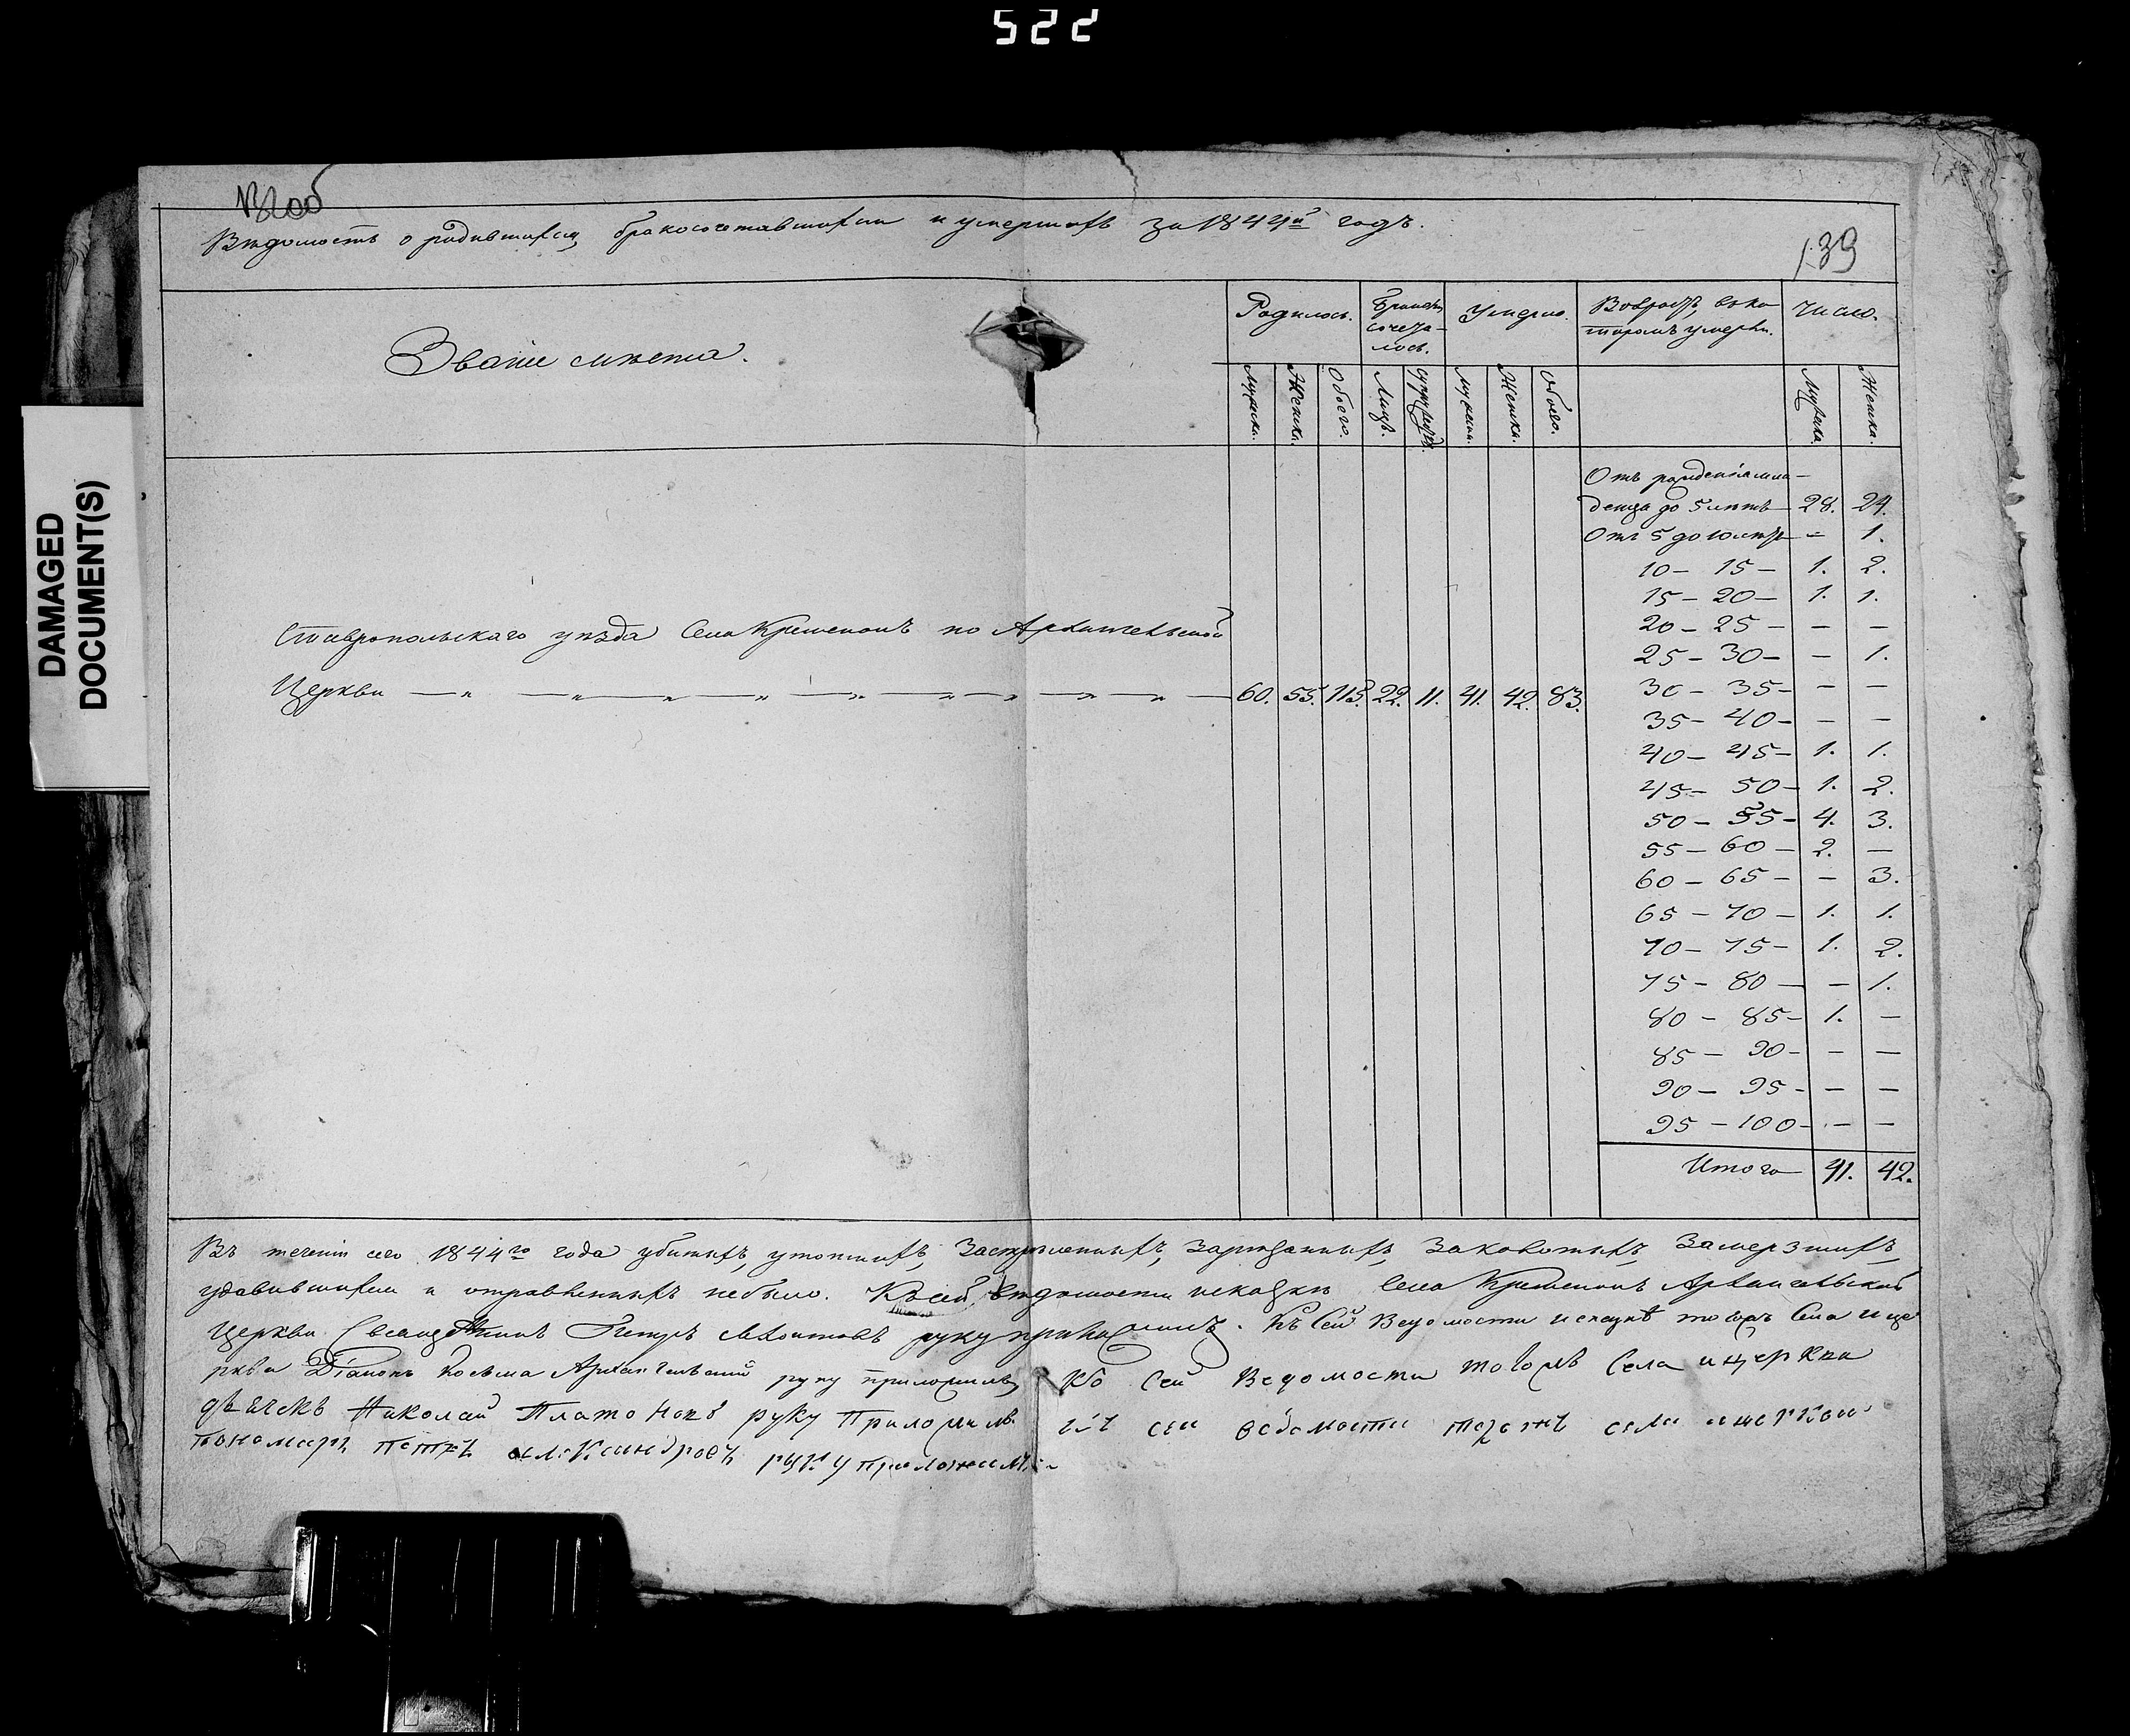 522
DAMAGED
DOCUMENT(S)
139
Вѣдомость о родившихся, бракосочетавшихся и умершихъ за 1844й годъ.
Званіе мѣста.
Родилось.
Бракомъ
сочета-
лось.
Умерло.
Возрастъ, въ ко
торомъ умерли.
Число.
Мужеска.
Женска.
Обоего.
Лицъ.
Супружествъ.
Мужеска.
Женска.
Обоего.
Мужска.
Женска.
Ставропольскаго уѣзда Села Кременокъ по Архангельской
Церкви — „ — „ — „ — „ — „ — „ — „ — „ — „ — 60. 55. 115. 22. 11. 41. 42. 83.
Отъ рожденія мла-
денца до 5 лѣтъ — 28. 24.
Отъ 5 до 10 лѣтъ — — 1.
10 — 15 — 1. 2.
15 — 20 — 1. 1.
20 — 25 — — —
25 — 30 — — 1.
30 — 35 — — —
35 — 40 — — —
40 — 45 — 1. 1.
45 — 50 — 1. 2.
50 — 55 — 4. 3.
55 — 60 — 2. —
60 — 65 — — 3.
65 — 70 — 1. 1.
70 — 75 — 1. 2.
75 — 80 — — 1.
80 — 85 — 1. —
85 — 90 — — —
90 — 95 — — —
95 — 100 — — —
Итого 41. 42.
Въ теченіи сего 1844го года убитыхъ, утопшихъ, застрѣленныхъ, зарѣзанныхъ, заколотыхъ, замерзшихъ,
удавившихся и отравленныхъ небыло. Къ сей вѣдомости Села Кременокъ Архангельской
Церкви Священникъ Петръ руку приложилъ. Къ Сей Ведомости тогожъ Села и це
ркви Діаконъ Косьма Архангельскій руку приложилъ Ко Сей Ведомости тогожъ Села и церкви
дьячекъ Николай Платоновъ руку Приложилъ къ сей ведомости тогожъ села и церкви
пономарь петръ александровъ руку приложилъ